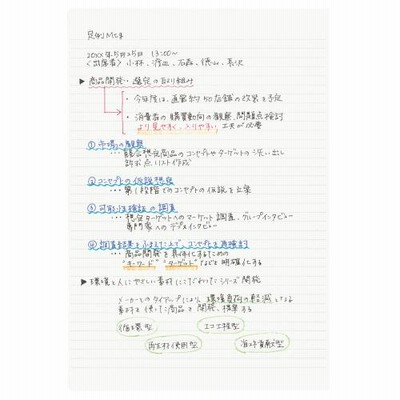 定例Mtg
20XX年5月25日 13:00〜
<出席者> 小林、 石森、徳山、長沢
▶ 商品開発・選定の取り組み
・今日度は、直営約40店舗の改装を予定
・消費者の購買動向の観察、問題点検討
より見やすく、入りやすい 工夫が必要
①市場の観察
… 競合想定商品のコンセプトやターゲットの洗い出し
訴求点リスト作成
②コンセプトの仮説想定
… 第1段階でのコンセプトの仮説を立案
③可能性検証の調査
… 想定ターゲットへのマーケット調査、グループインタビュー
専門家へのデプスインタビュー
④調査結果をふまえた上で、コンセプトを再検討
… 商品開発を具体化するための
"キーワード" "ターゲット"などを明確化する
▶ 環境と人にやさしい素材にこだわったシリーズ開発
メーカーとのタイアップにより、環境負荷の軽減となる
素材を使った商品を開発、提案する
循環型 エコ工程型
再生材使用型 省エネ貢献型